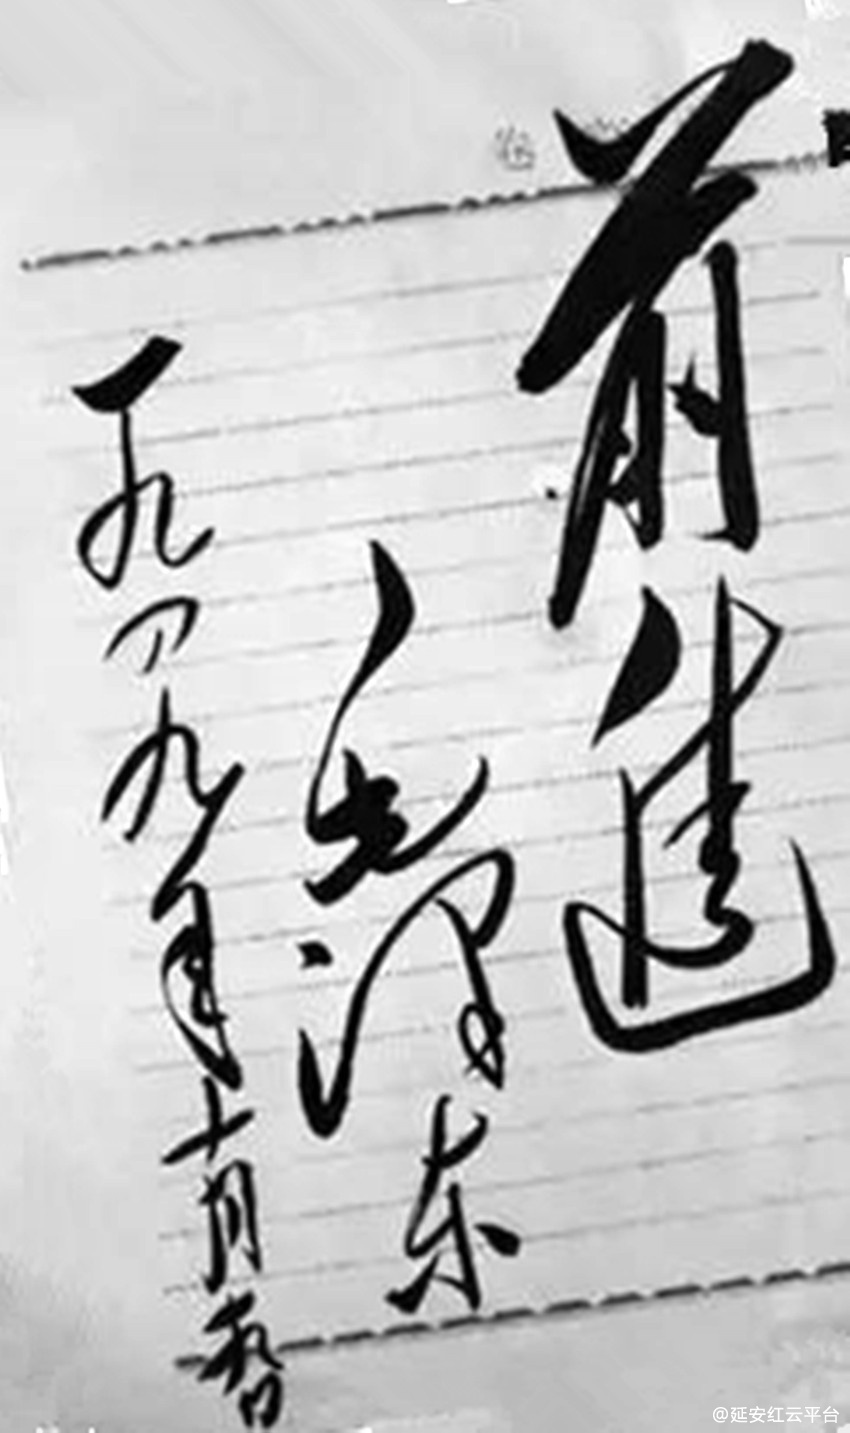 前進
毛泽东
一九四九年十月
@延安红云平台